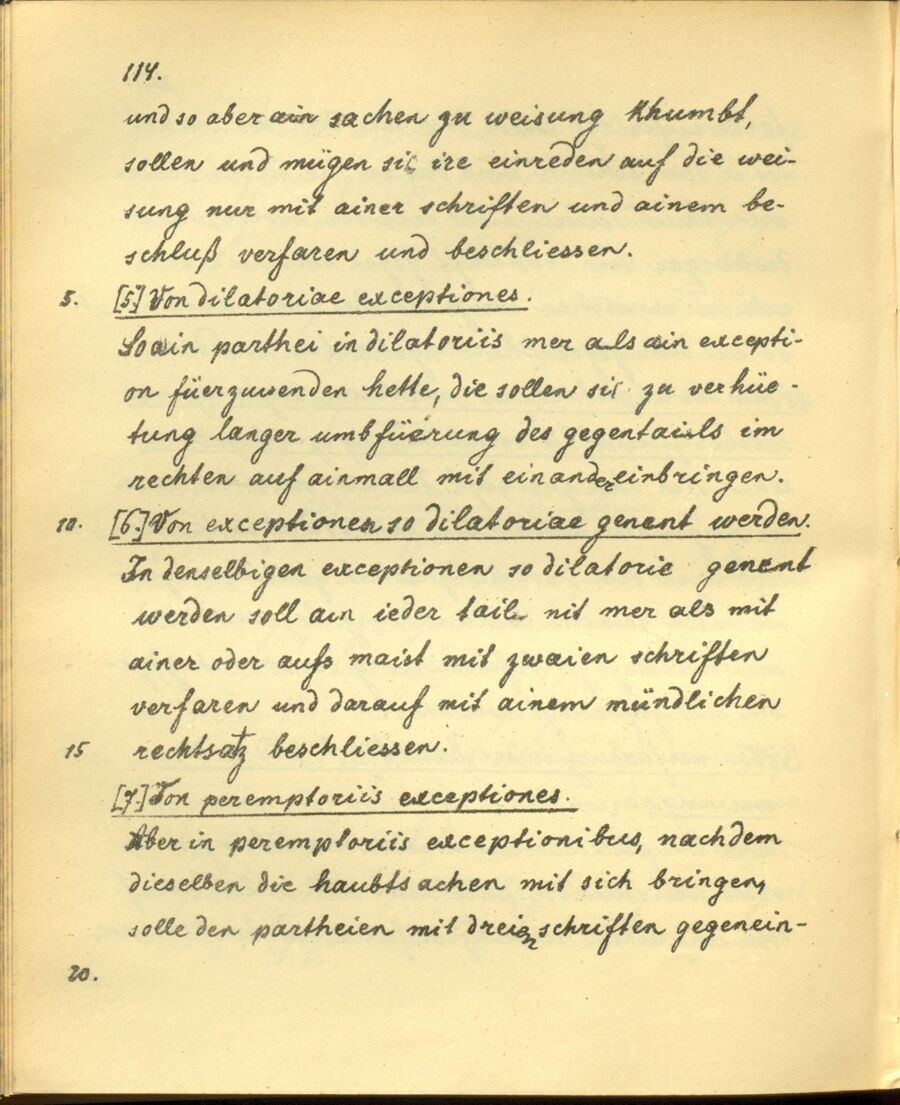 114.
und so aber ain sachen zu weisung khumbt,
sollen und mügen sie ire einreden auf die wei-
sung nur mit ainer schriften und ainem be-
schluß verfaren und beschliessen.
5. [5.] Von dilatoriae exceptiones.
So ain parthei in dilatoriis mer als ain excepti-
on füerzuwenden hette, die sollen sie zu verhüe-
tung langer umbfüerung des gegentails im
rechten auf ainmall mit einander einbringen.
10. [6.] Von exceptionen so dilatoriae genent werden.
In denselbigen exceptionen so dilatorie genent
werden soll ain ieder tail nit mer als mit
ainer oder aufs maist mit zwaien schriften
verfaren und darauf mit ainem mündlichen
15 rechtsatz beschliessen.
[7.] Von peremptoriis exceptiones.
Aber in peremptoriis exceptionibus, nachdem
dieselben die haubtsachen mit sich bringen,
solle den partheien mit dreien schriften gegenein-
20.